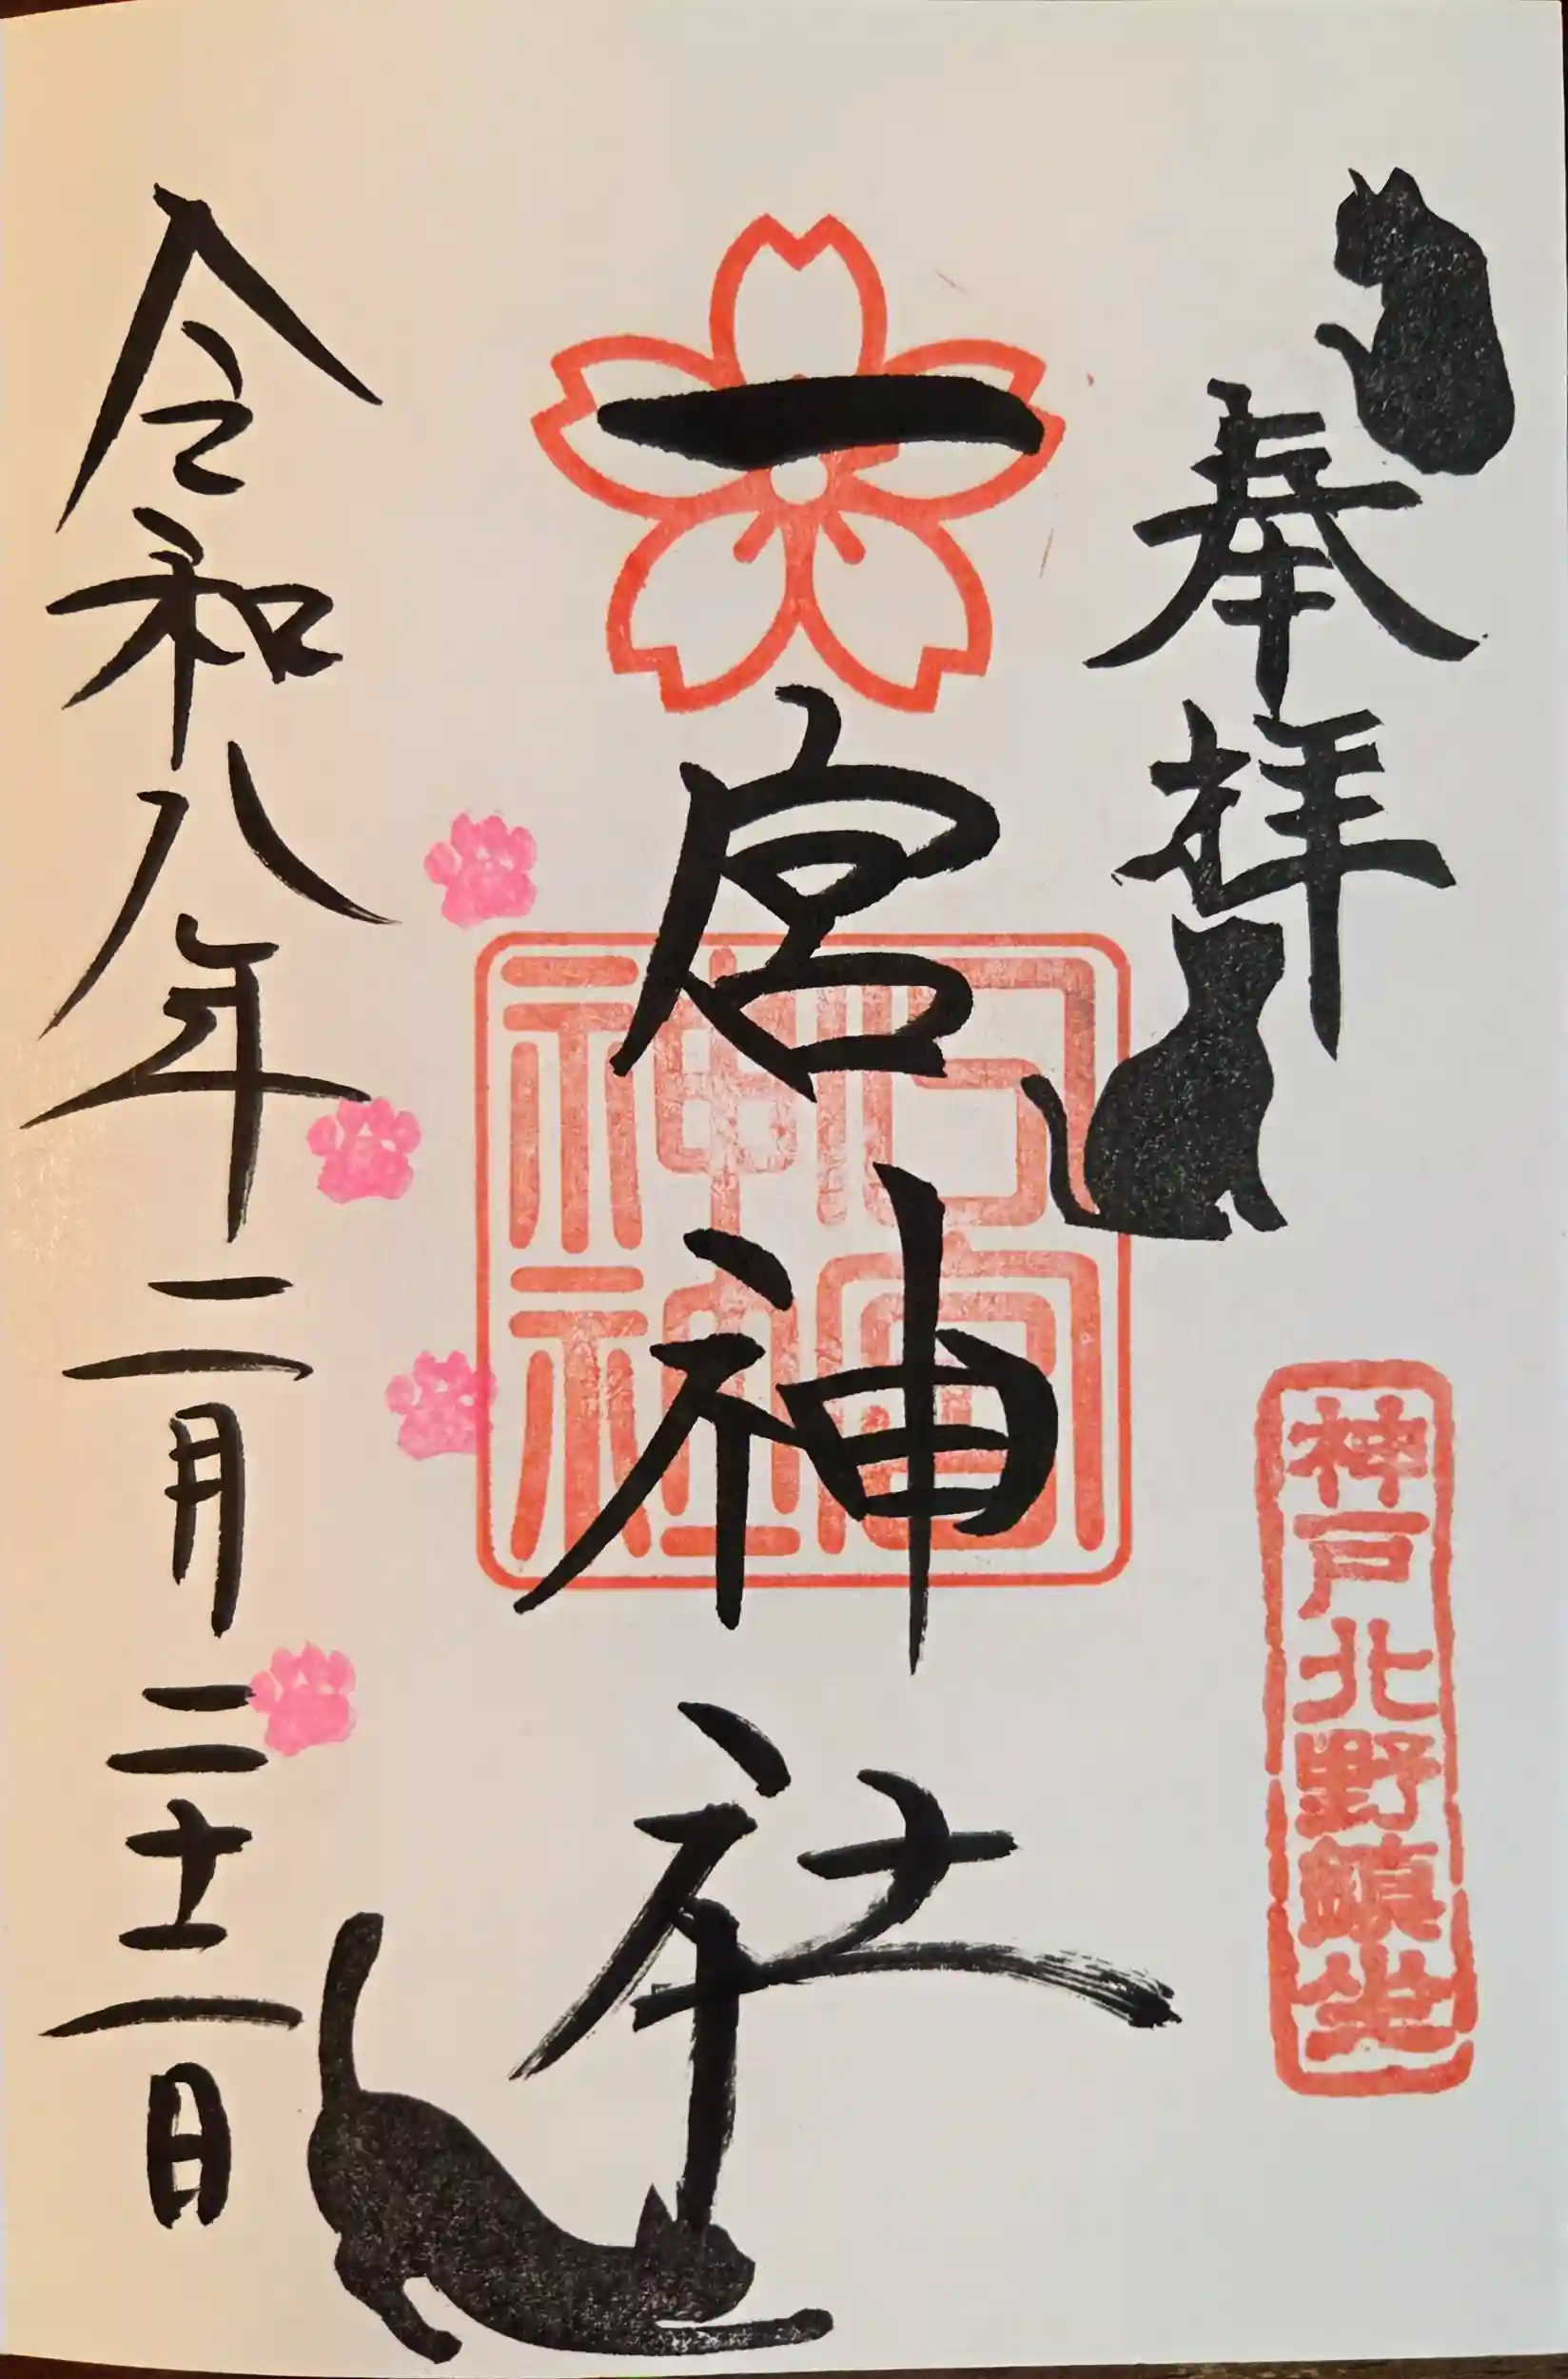 奉拝
神戸北野鎮坐
一宮神社
令和八年二月二十二日